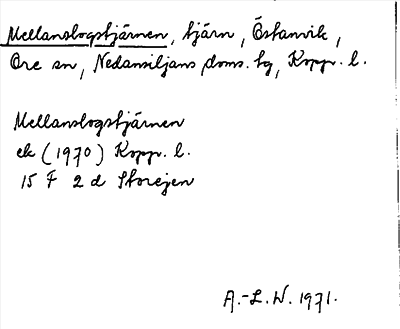 Mellanslogstjärnen, tjärn, Östanvik,
Ore sn, Nedansiljans doms. tg, Kopp. l.
Mellanslogstjärnen
ek (1970) Kopp. l.
15 F 2 d Storejen
A.-L. W. 1971.